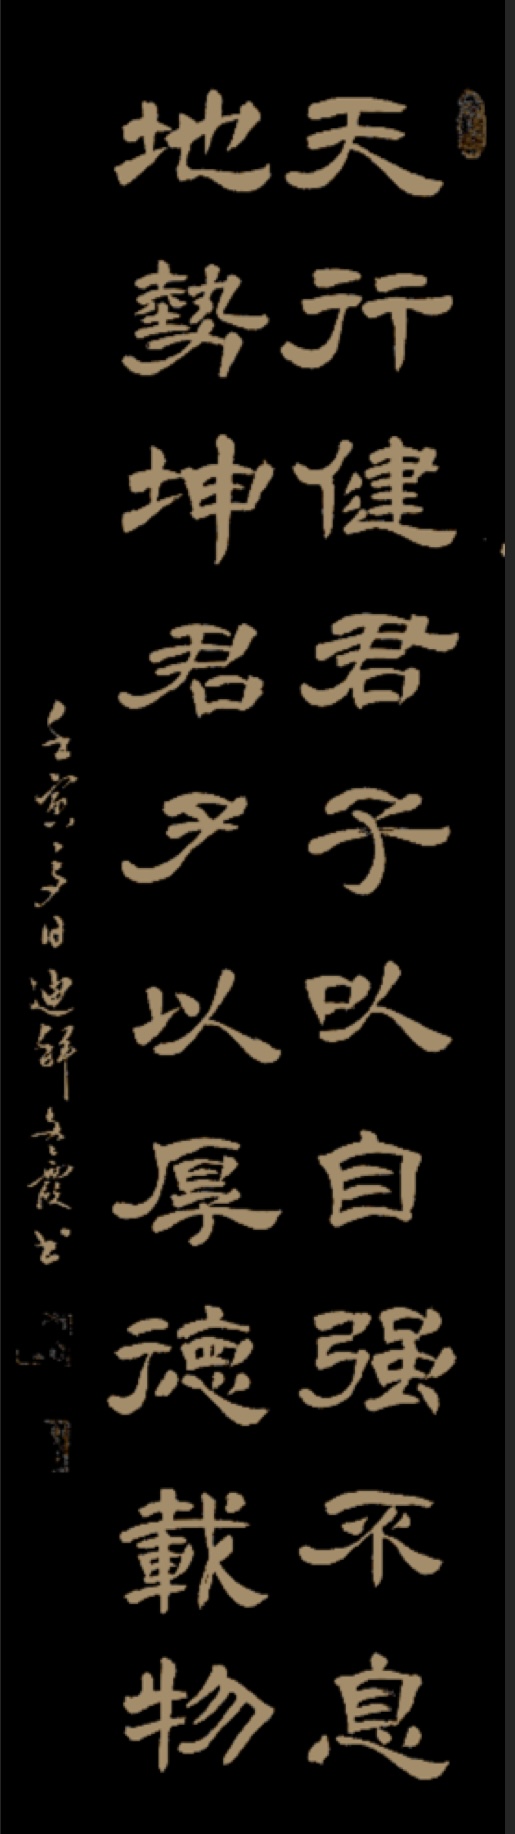 天行健君子以自强不息
地勢坤君子以厚德載物
壬寅冬日迪霞书